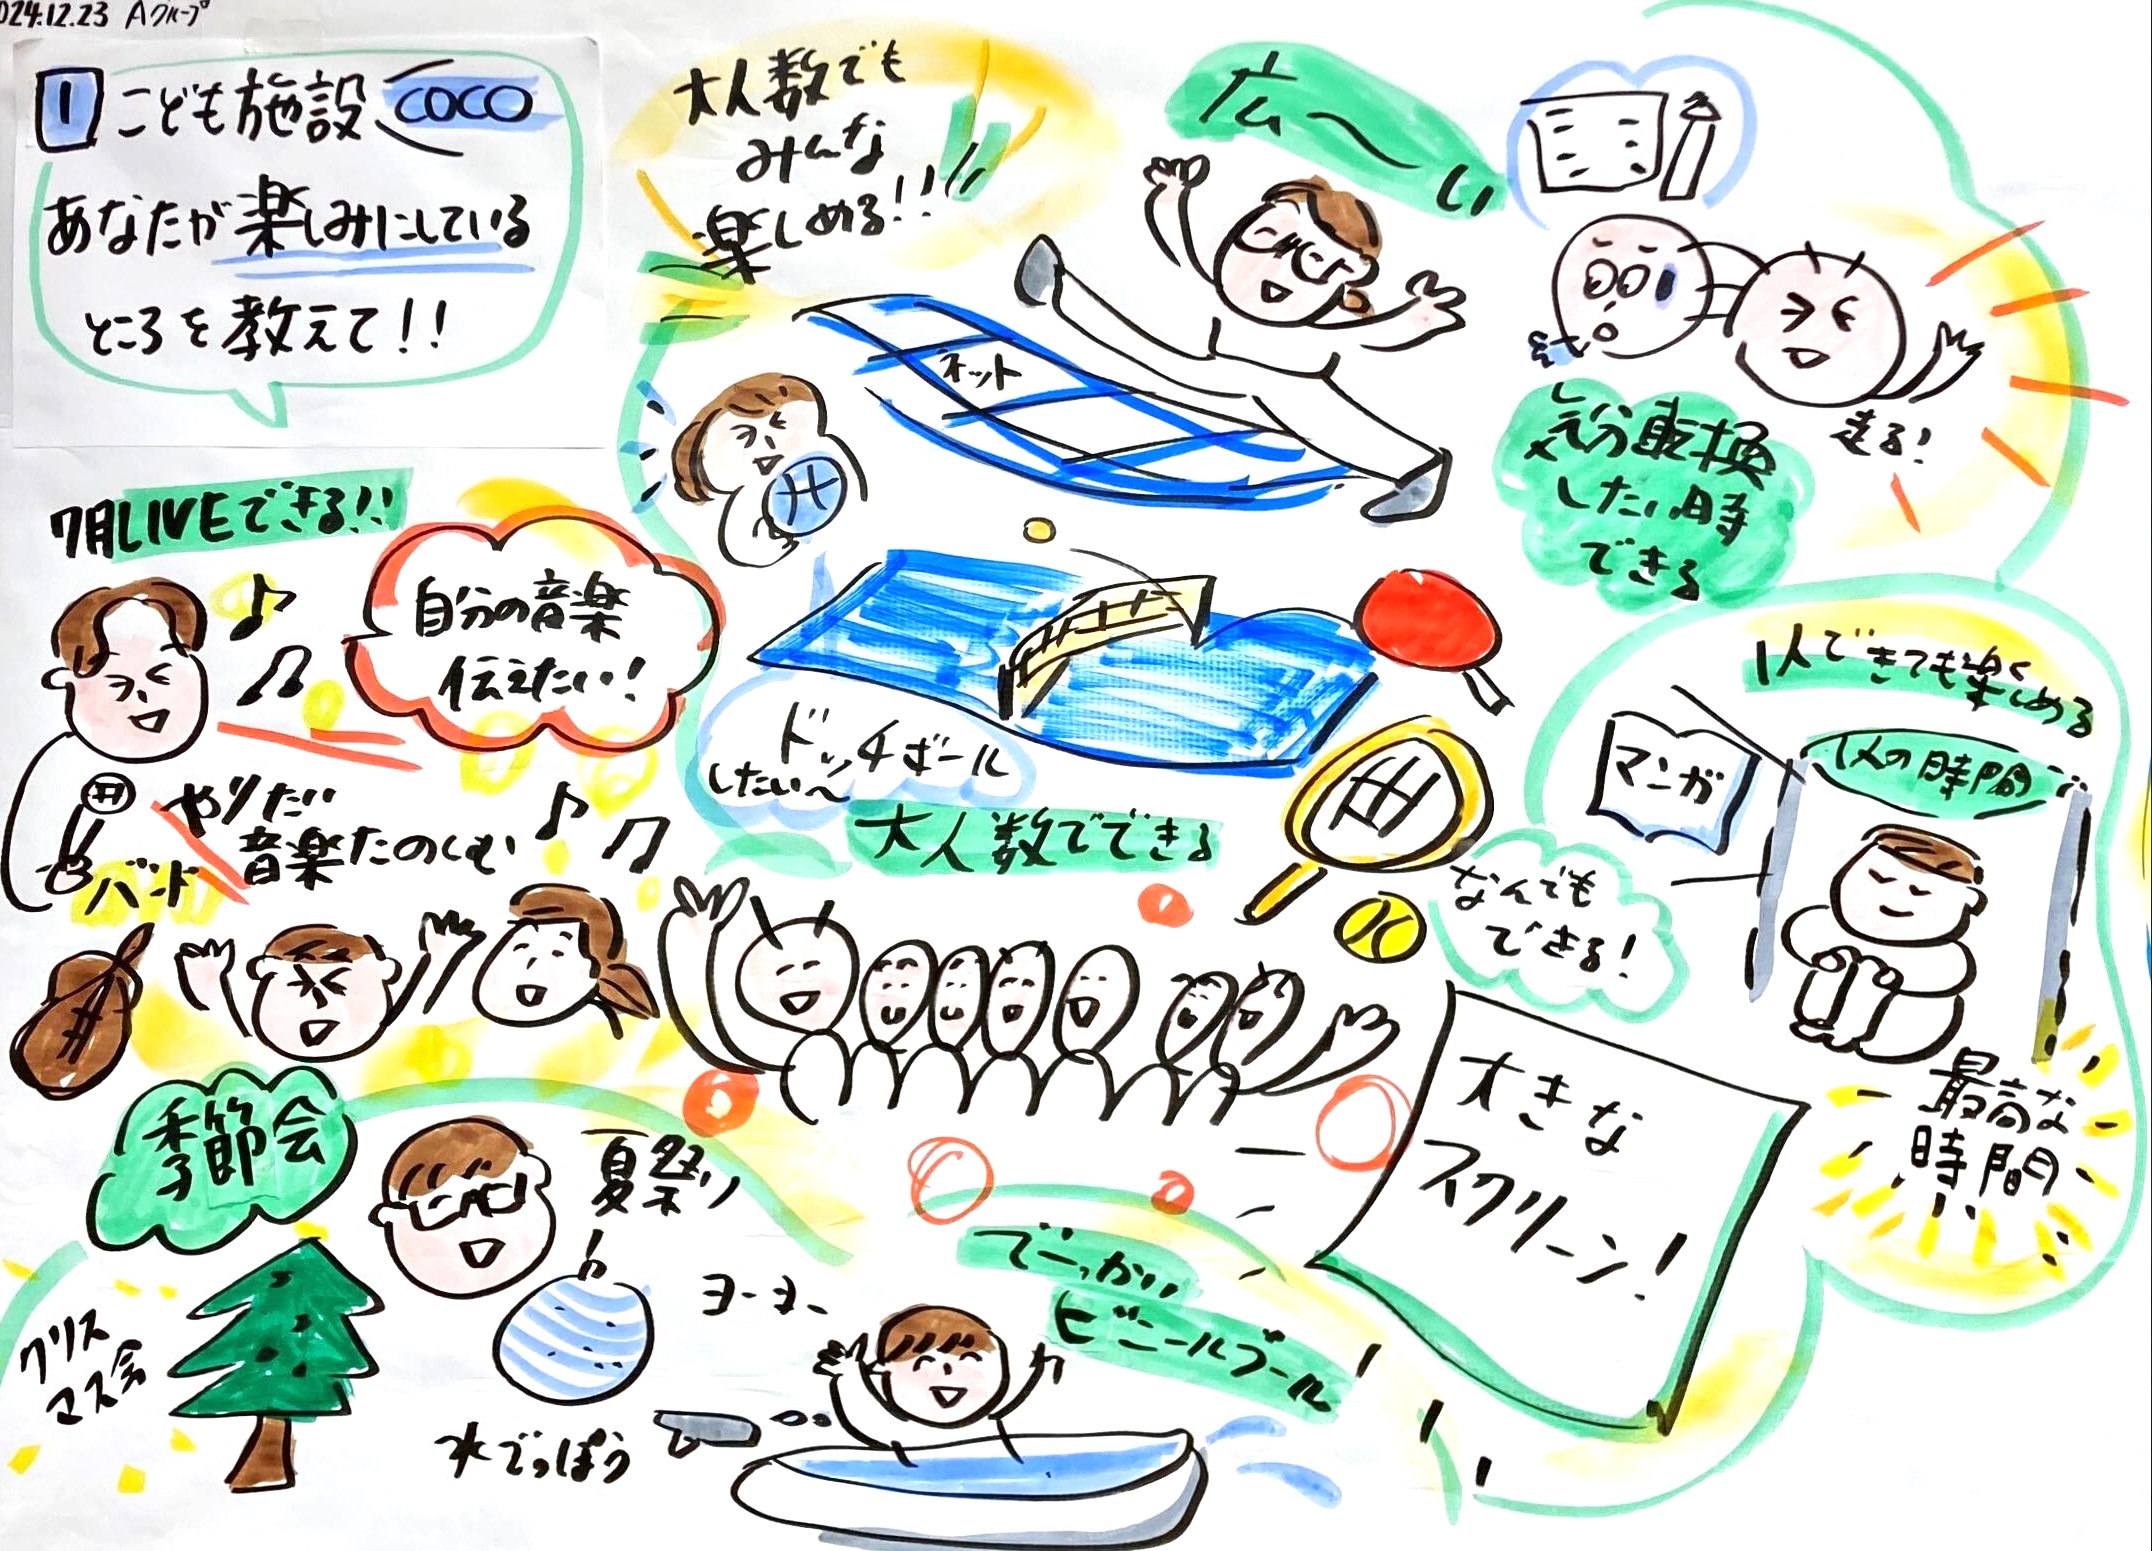 024.12.23 Aグループ
1 こども施設 COCO
あなたが楽しみにしている
ところを教えて!!
大人数でも
みんな
楽しめる!!
広〜い
ネット
走る!
気分転換
したい時
できる
7月LIVEできる!!
自分の音楽
伝えたい!
やりたい
音楽たのしむ
バンド
ドッチボール
したい〜
大人数でできる
なんでも
できる!
1人できても楽しめる
1人の時間
マンガ
最高な
時間
大きな
スクリーン!
季節会
夏祭り
ヨーヨー
クリス
マス会
水でっぽう
でーっかい
ビニールプール